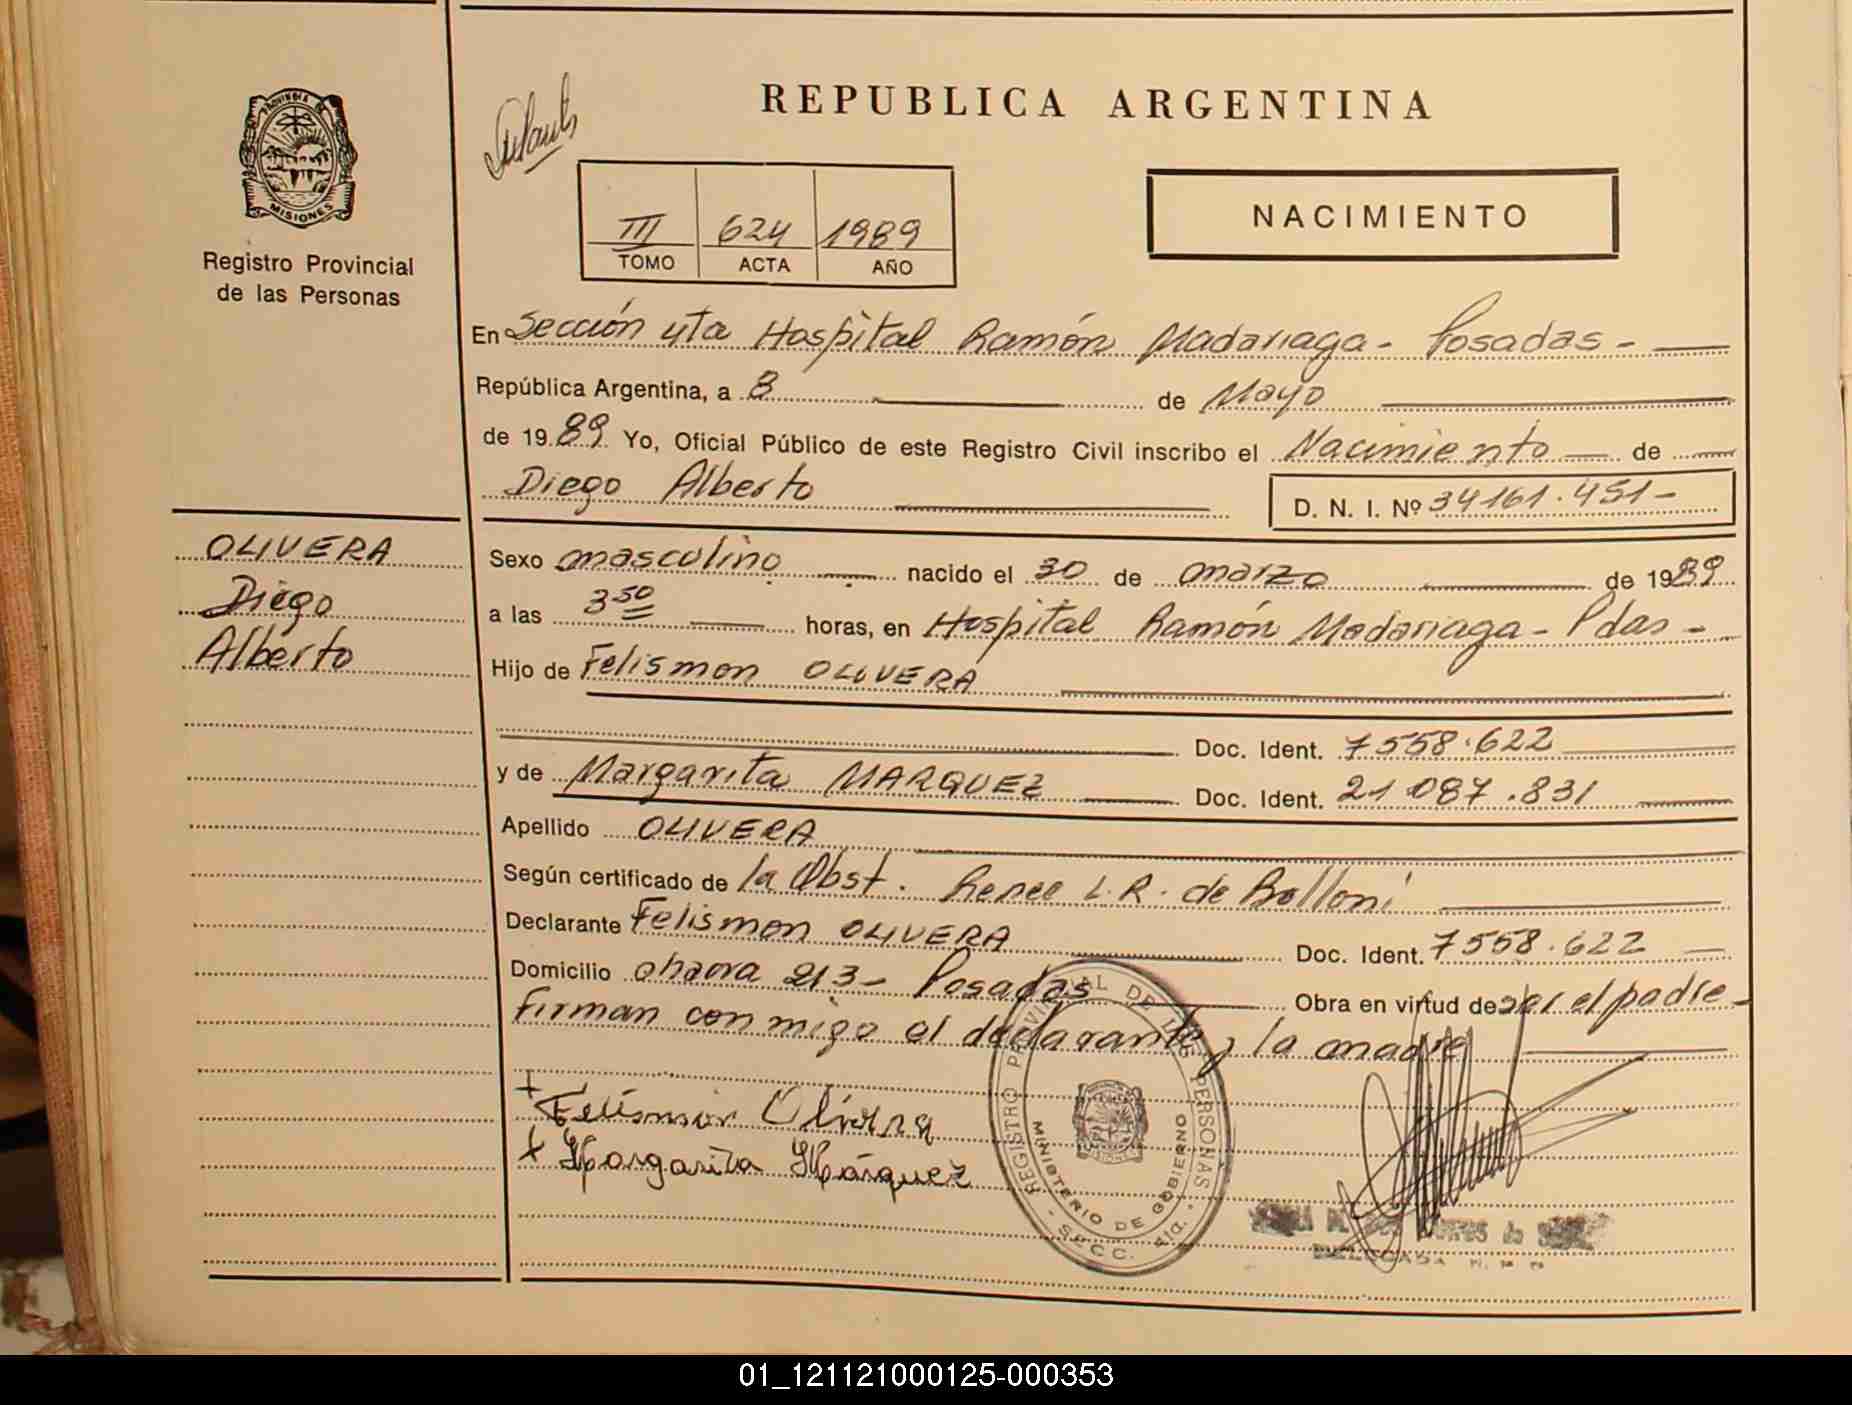 PROVINCIA DE
MISIONES
Registro Provincial
de las Personas
REPUBLICA ARGENTINA
III 624 1989
TOMO ACTA AÑO
NACIMIENTO
En Sección 4ta Hospital Ramón Madariaga - Posadas -
República Argentina, a 8 de Mayo
de 1989 Yo, Oficial Público de este Registro Civil inscribo el Nacimiento de
Diego Alberto
D. N. I. Nº 34161.451-
OLIVERA
Diego
Alberto
Sexo masculino nacido el 30 de marzo de 1989
a las 3 50 horas, en Hospital Ramón Madariaga - Pdas -
Hijo de Felismon OLIVERA
Doc. Ident. 7558.622
y de Margarita MARQUEZ Doc. Ident. 21 087.831
Apellido OLIVERA
Según certificado de la Obst. Renee L.R. de Bolloni
Declarante Felismon OLIVERA Doc. Ident. 7558.622
Domicilio chacra 213 - Posadas Obra en virtud de ser el padre -
Firman conmigo el declarante y la madre
+ Felismon Olivera
+ Margarita Márquez
REGISTRO PROVINCIAL DE LAS PERSONAS
MINISTERIO DE GOBIERNO
DELEGADA
01_121121000125-000353